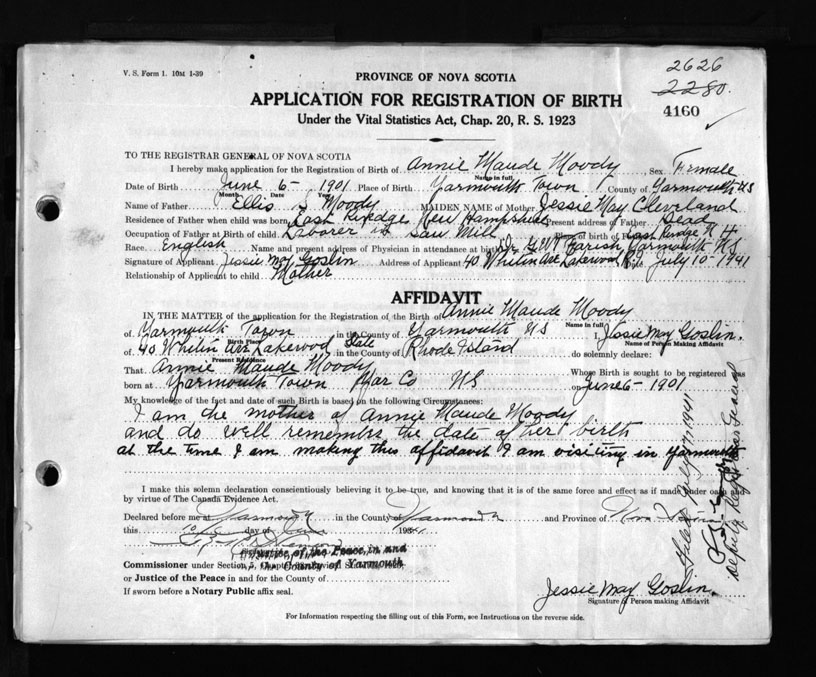 V. S. Form 1. 10M 1-39
2626
2280.
4160
PROVINCE OF NOVA SCOTIA
APPLICATION FOR REGISTRATION OF BIRTH
Under the Vital Statistics Act, Chap. 20, R. S. 1923
TO THE REGISTRAR GENERAL OF NOVA SCOTIA
I hereby make application for the Registration of Birth of Annie Maude Moody, Sex Female
Name in full
Date of Birth June 6 - 1901 Place of Birth Yarmouth Town County of Yarmouth NS
Month Date Year
Name of Father Ellis S Moody MAIDEN NAME of Mother Jessie May Cleveland
Residence of Father when child was born, East Rindge, New Hampshire Present address of Father Dead
Occupation of Father at Birth of child Laborer in Saw Mill Place of birth of East Rindge N H
Race English Name and present address of Physician in attendance at birth Farish, Yarmouth NS
Signature of Applicant Jessie May Goslin Address of Applicant 40 Whitin Ave Lakewood R.I. July 10 - 1941
Relationship of Applicant to child Mother
AFFIDAVIT
IN THE MATTER of the application for the Registration of the Birth of Annie Maude Moody
Name in full
of Yarmouth Town in the County of Yarmouth NS I, Jessie May Goslin,
Birth Place Name of Person Making Affidavit
of 40 Whitin Ave Lakewood State in the County of Rhode Island do solemnly declare:
Present Residence
That Annie Maude Moody Whose Birth is sought to be registered was
born at Yarmouth Town Yar Co NS on June 6 - 1901
My knowledge of the fact and date of such Birth is based on the following Circumstances:
I am the mother of Annie Maude Moody
and do well remember the date of her birth
at the time I am making this affidavit I am visiting in Yarmouth
I make this solemn declaration conscientiously believing it to be true, and knowing that it is of the same force and effect as if made under oath and
by virtue of The Canada Evidence Act.
Declared before me at Yarmouth in the County of Yarmouth and Province of Nova Scotia
this 10 day of 194
Justice of the Peace in and
Commissioner under Section 5, Chapter
for County of Yarmouth
or Justice of the Peace in and for the County of
If sworn before a Notary Public affix seal.
Jessie May Goslin.
Signature of Person making Affidavit
For Information respecting the filling out of this Form, see Instructions on the reverse side.
Filed July 1941
Deputy Registrar General